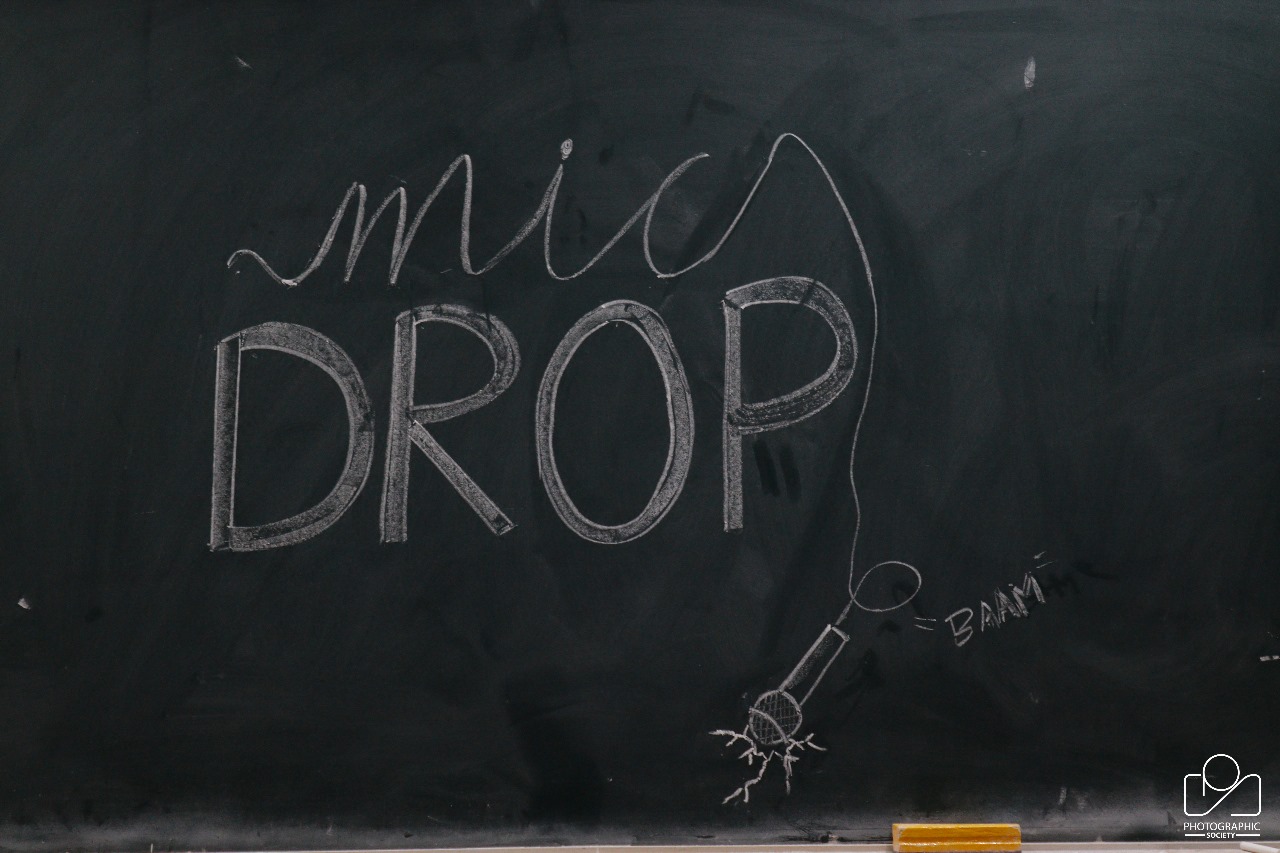 mic
DROP
BAAM
PHOTOGRAPHIC
SOCIETY